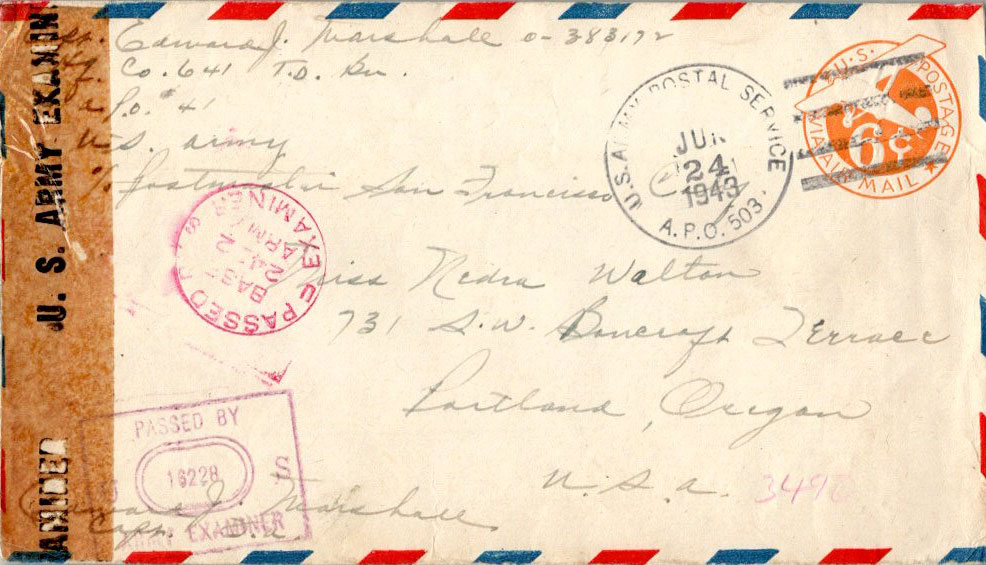 Edward J. Marshall O-383172
Co. 641 T.D. Bn.
A.P.O. #41
U.S. Army
% Postmaster San Francisco
U.S. ARMY POSTAL SERVICE
JUN
24
1943
A.P.O. 503
U.S. POSTAGE
6¢
VIA AIR MAIL
U. S. ARMY EXAMIN
AMINER
PASSED
BASE
ARMY
EXAMINER
Miss Nedra Walton
731 S.W. Bancroft Terrace
Portland, Oregon
U.S.A.
PASSED BY
16228
S
ARMY EXAMINER
Edward J. Marshall
Capt.